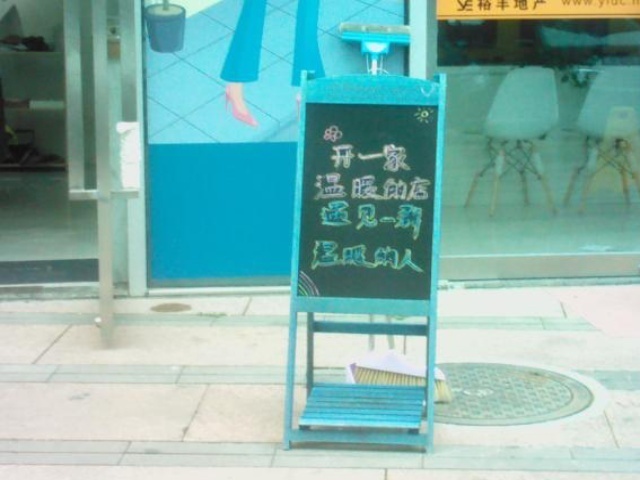 裕丰地产 www.yfdc.
开一家
温暖的店
遇见一群
温暖的人